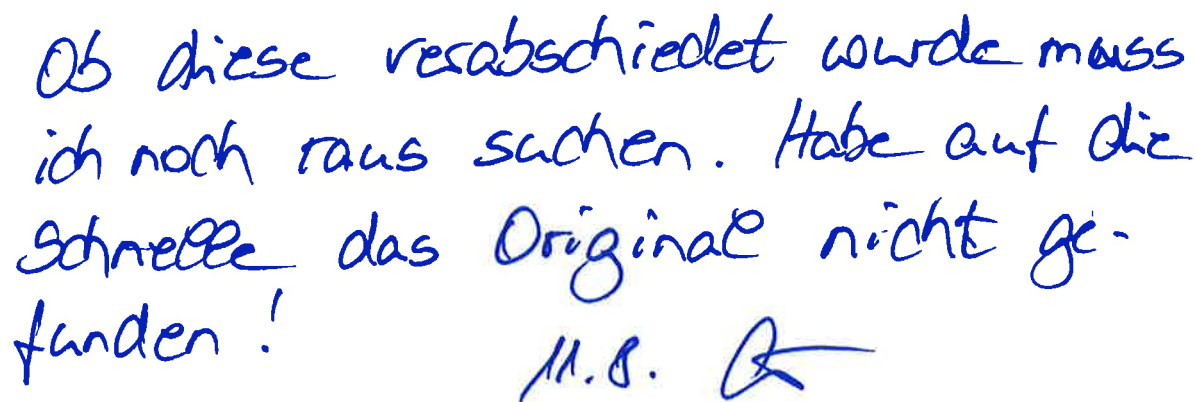 Ob diese verabschiedet wurde muss
ich noch raus suchen. Habe auf die
Schnelle das Original nicht ge-
funden!
11.8.